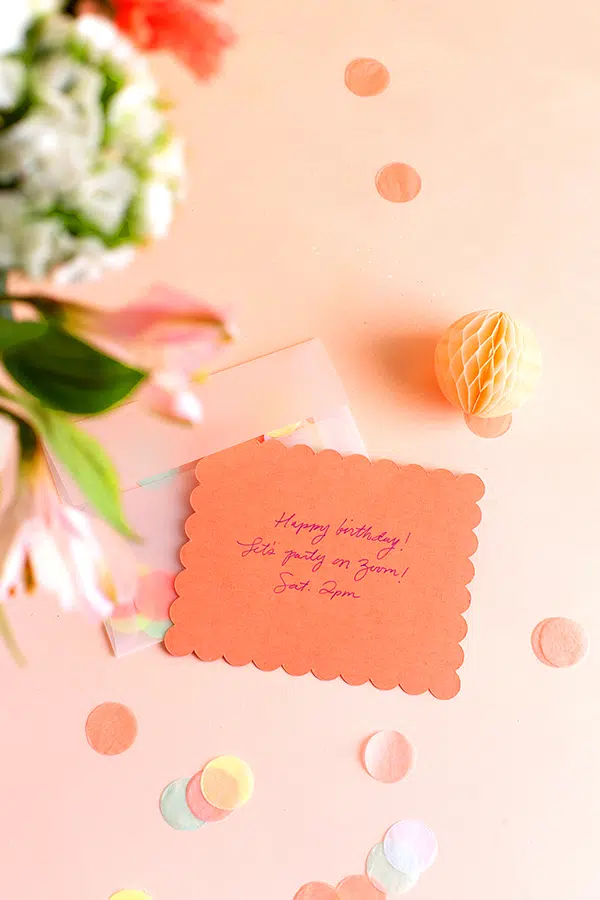 Happy birthday!
Let's party on Zoom!
Sat. 2pm